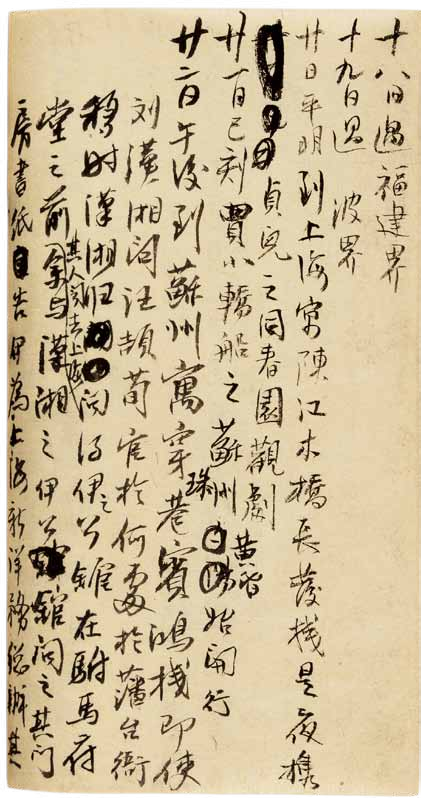 十八日過福建界
十九日過 波界
廿日平明到上海寓陳江木橋長發棧是夜攜
貞兒之同春園觀劇
廿一日巳刻買小轎船之蘇州黃昏始開行
廿二日午後到蘇州寓穿珠巷賓鴻棧即使
刘漢湘问汪頡荀官於何處於藩台衙
移时漢湘归问得伊之公館在駙馬府
堂之前余与漢湘之伊公館问之其门
其人闻去上海
房書紙自告伊為上海新洋務總辦其